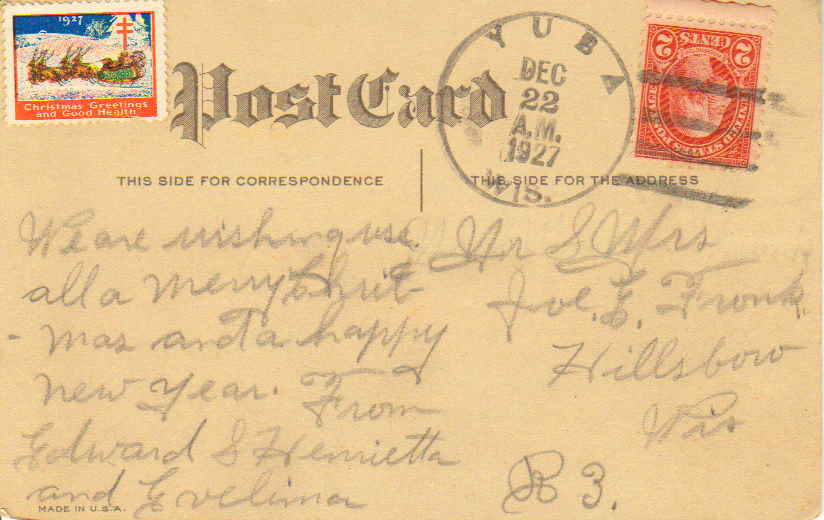 1927
Christmas Greetings
and Good Health
Post Card
YUBA
DEC
22
A.M.
1927
WIS.
2 CENTS 2
UNITED STATES POSTAGE
THIS SIDE FOR CORRESPONDENCE
THIS SIDE FOR THE ADDRESS
We are wishing use
all a merry Christ
- mas and a happy
new year. From
Edward & Henrietta
and Evelina
Mr & Mrs
Joe. E. Fronk
Hillsboro
Wis
R 3.
MADE IN U.S.A.